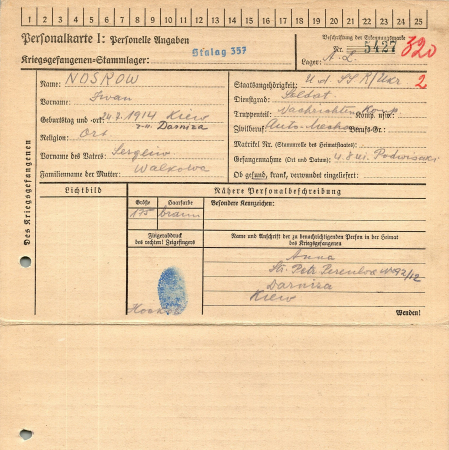 1 2 3 4 5 6 7 8 9 10 11 12 13 14 15 16 17 18 19 20 21 22 23 24 25
Personalkarte I: Personelle Angaben
Kriegsgefangenen-Stammlager: Stalag 357
Beschriftung der Erkennungsmarke
Nr. 5427 320
Lager:
Des Kriegsgefangenen
Name: NOSKOW
Vorname: Iwan
Geburtstag und -ort: 24.7.1914 Kiew
Darniza
Religion: Ort
Vorname des Vaters: Sergeiw
Familienname der Mutter: Walkowa
Staatsangehörigkeit: U d SSR/Ukr 2
Dienstgrad: Soldat
Truppenteil: Nachrichten Komp. usw.:
Zivilberuf: Auto-Mechan Berufs-Gr.:
Matrikel Nr. (Stammrolle des Heimatstaates):
Gefangennahme (Ort und Datum):
Ob gesund, krank, verwundet eingeliefert:
Lichtbild
Nähere Personalbeschreibung
Größe Haarfarbe Besondere Kennzeichen:
175 braun
Fingerabdruck
des rechten! Zeigefingers
Name und Anschrift der zu benachrichtigenden Person in der Heimat
des Kriegsgefangenen
Anna
Darniza
Kiew
Wenden!